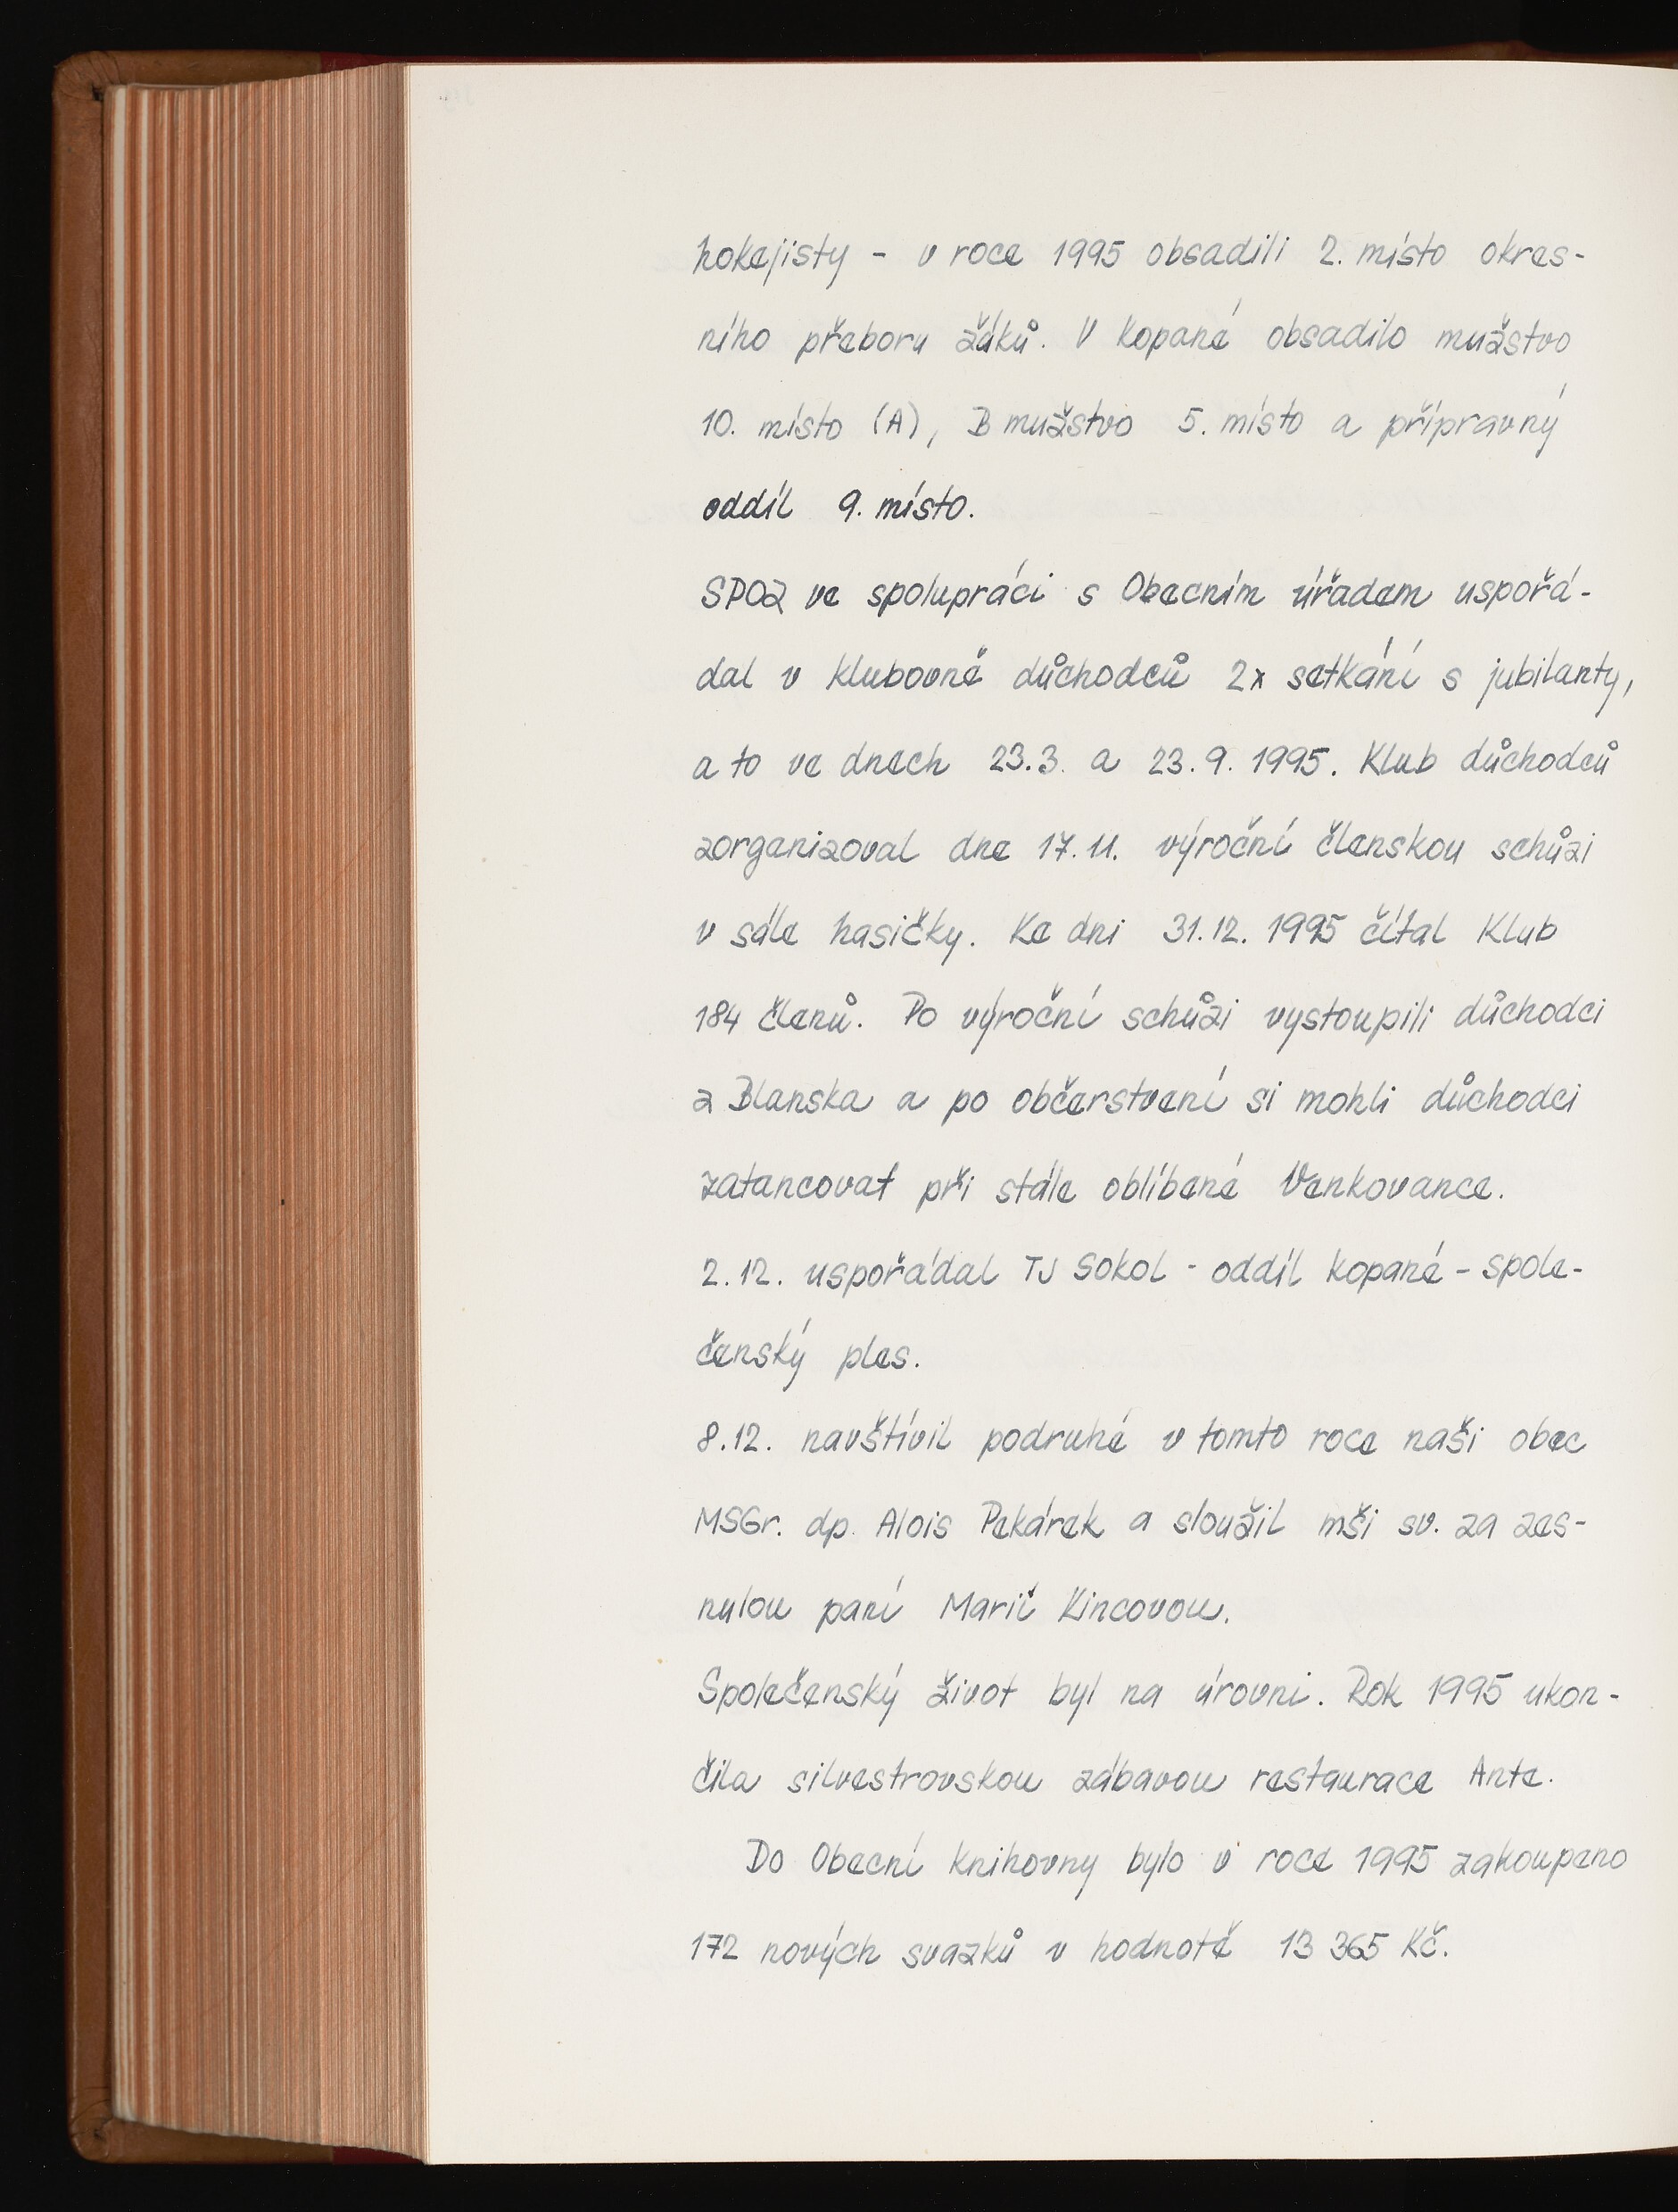 hokejisty - v roce 1995 obsadili 2. místo okres-
ního přeboru žáků. V kopané obsadilo mužstvo
10. místo (A), B mužstvo 5. místo a přípravný
oddíl 9. místo.
SPOZ ve spolupráci s Obecním úřadem uspořá-
dal v klubovně důchodců 2x setkání s jubilanty,
a to ve dnech 23.3. a 23.9. 1995. Klub důchodců
zorganizoval dne 17.11. výroční členskou schůzi
v sále hasičky. Ke dni 31.12. 1995 čítal Klub
184 členů. Po výroční schůzi vystoupili důchodci
z Blanska a po občerstvení si mohli důchodci
zatancovat při stále oblíbené Venkovance.
2.12. uspořádal TJ Sokol - oddíl kopané - spole-
čenský ples.
8.12. navštívil podruhé v tomto roce naši obec
MSGr. dp. Alois Pekárek a sloužil mši sv. za zes-
nulou paní Marii Kincovou.
Společenský život byl na úrovni. Rok 1995 ukon-
čila silvestrovskou zábavou restaurace Ante.
Do Obecní knihovny bylo v roce 1995 zakoupeno
172 nových svazků v hodnotě 13 365 Kč.